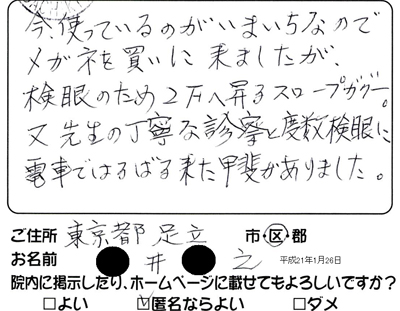 今使っているのがいまいちなので
メガネを買いに来ましたが、
検眼のため2Fへ昇るスロープがグー。
又先生の丁寧な診察と度数検眼に
電車ではるばる来た甲斐がありました。
ご住所 東京都 足立 市・区・郡
お名前 井 之 平成21年1月26日
院内に掲示したり、ホームページに載せてもよろしいですか?
□よい ☑匿名ならよい □ダメ